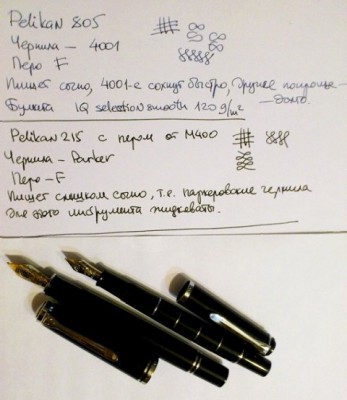 Pelikan 805
Чернила – 4001
Перо F
Пишет сочно, 4001-е сохнут быстро, другие попроще –
Бумага IQ selection smooth 120 g/m² – долго.
Pelikan 215 с пером от M400
Чернила – Parker
Перо – F
Пишет слишком сочно, т.е. паркеровские чернила
для этого инструмента жидковаты.